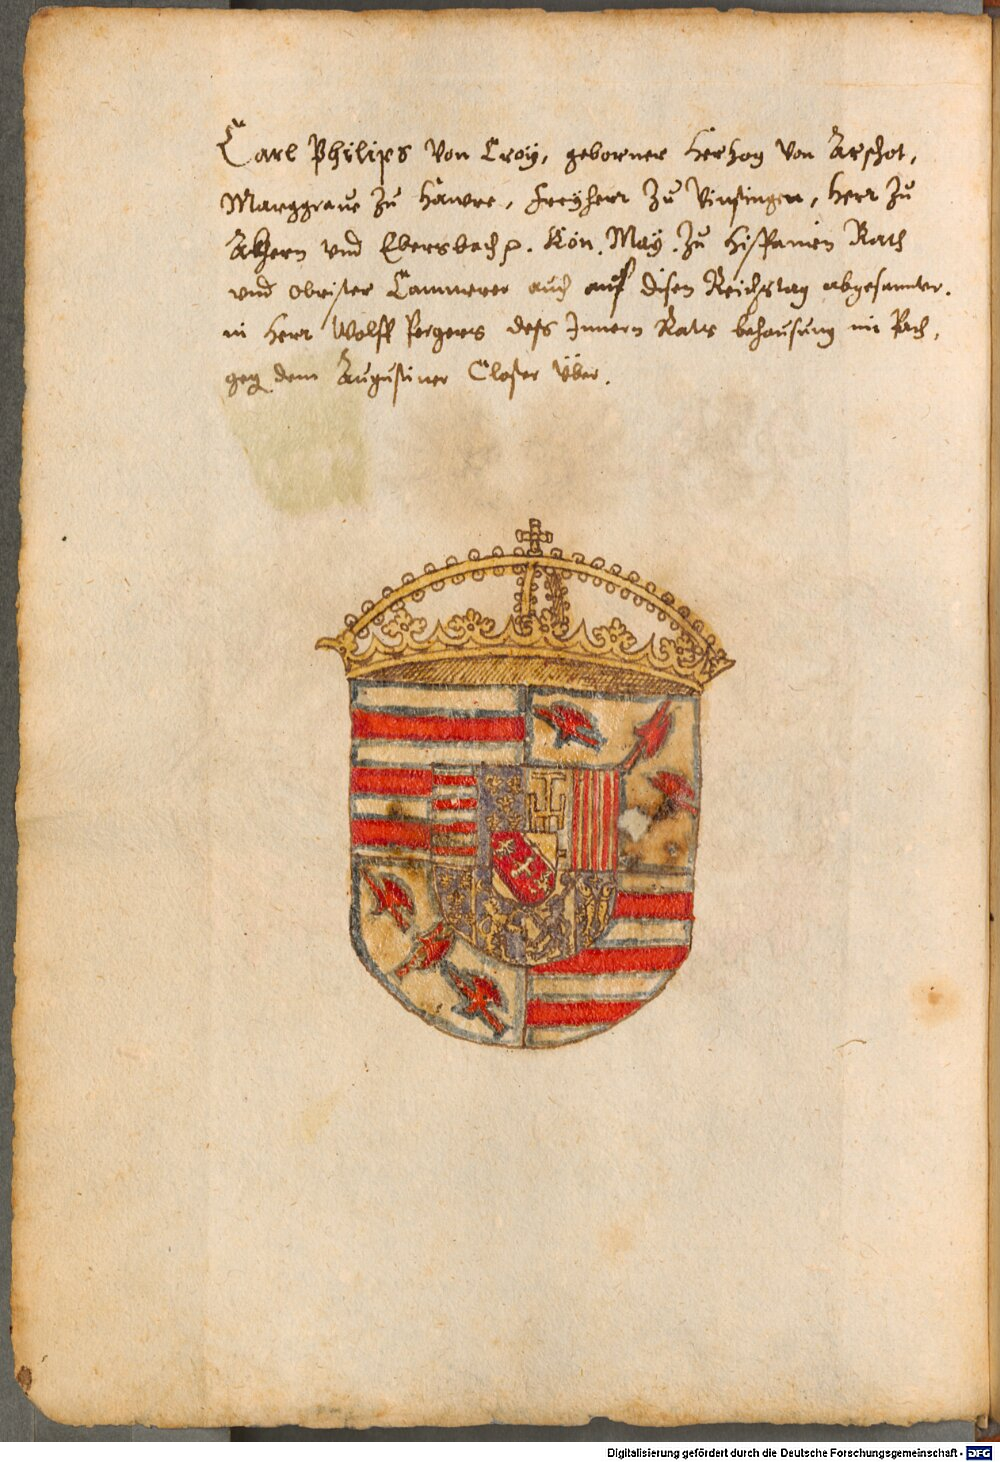 Carl Philips von Croy, geborner Herzog von Arschot,
Marggraue zu Hawre, Freyherr zu Vinstingen, Herr zu
vnd Ebersbach p. Kön. May. zu Hispanien Rath
vnd obrister Cammerer auch auf disen Reichstag abgesannter.
in Herr Wolff Pergers deſs Innern Raths behausung im Pach,
geg dem Augustiner Closter über.
Digitalisierung gefördert durch die Deutsche Forschungsgemeinschaft - DFG